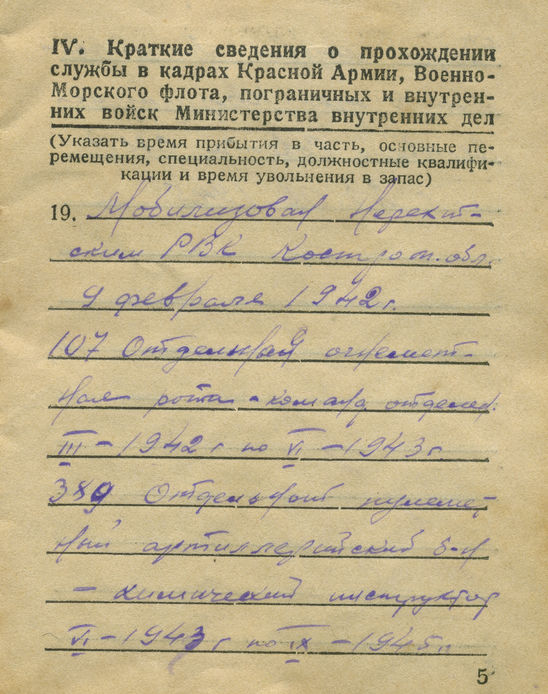 IV. Краткие сведения о прохождении
службы в кадрах Красной Армии, Военно-
Морского флота, пограничных и внутрен-
них войск Министерства внутренних дел
(Указать время прибытия в часть, основные пе-
ремещения, специальность, должностные квалифи-
кации и время увольнения в запас)
19. Мобилизован Нерехт-
ским РВК Костром. обл.
9 февраля 1942 г.
107 Отдельная огнемет-
ная рота - команд. отделен.
III - 1942 г по VI - 1943 г
389 Отдельный пулемет-
ный артиллерийский б-н
- химический инструктор
VI - 1943 г по IX - 1945 г.
5